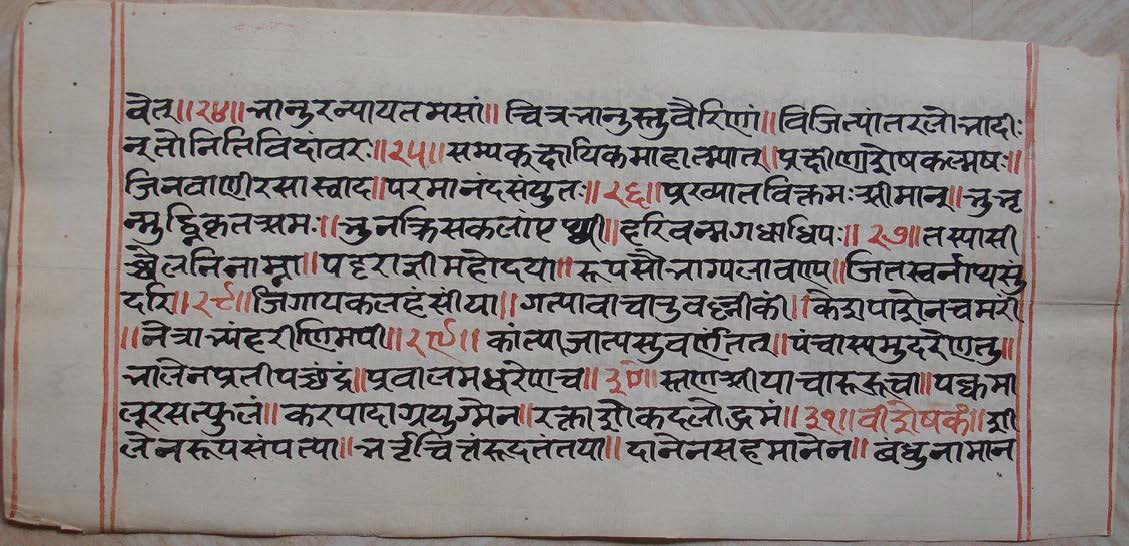 वेत्॥२४॥भानुरन्यायतमसां॥चित्रभानुस्तुवैरिणां॥विजित्यांतरलोभादीः
न्रतोनितिविदांवरः॥२५॥सम्यकक्षायिकमाहात्म्यात्॥प्रक्षीणाशेषकल्मषः॥
जिनवाणीरसास्वाद॥परमानंदसंयुतः॥२६॥प्रख्यातविक्रमःश्रीमान्॥भुभृ
न्मुर्द्ध्निकृतश्रमः॥भुनक्तिसकलांपृथ्वी॥हरिवन्मगधाधिपः॥२७॥तस्यासी
च्चेलनिनाम्ना॥पट्टराज्ञीमहोदया॥रूपसौभाग्यलावण्य॥जितस्वर्नार्प्यसुं
दरि॥२८॥जिगायकलहंसींया॥गत्यावाचानुवल्लकीं॥केशपाशेनचमरी
॥नेत्राभ्यांहरीणिमपी॥२९॥कांत्याजात्यसुवर्णतत्॥पंचास्यमुदरेणतु॥
भालेनप्रतीपच्चंद्रं॥प्रवालमधरेणच॥३०॥स्तणश्रीयाचारूरूचा॥पक्वमा
लूरसत्फुलं॥करपादाग्रयुग्मेन॥रक्ताशोकदलोद्गमं॥३१॥वीशेषकं॥शी
लेनरूपसंपत्या॥भर्तृचित्तंरूदतंतया॥दानेनसहमानेन॥बंधुनामान